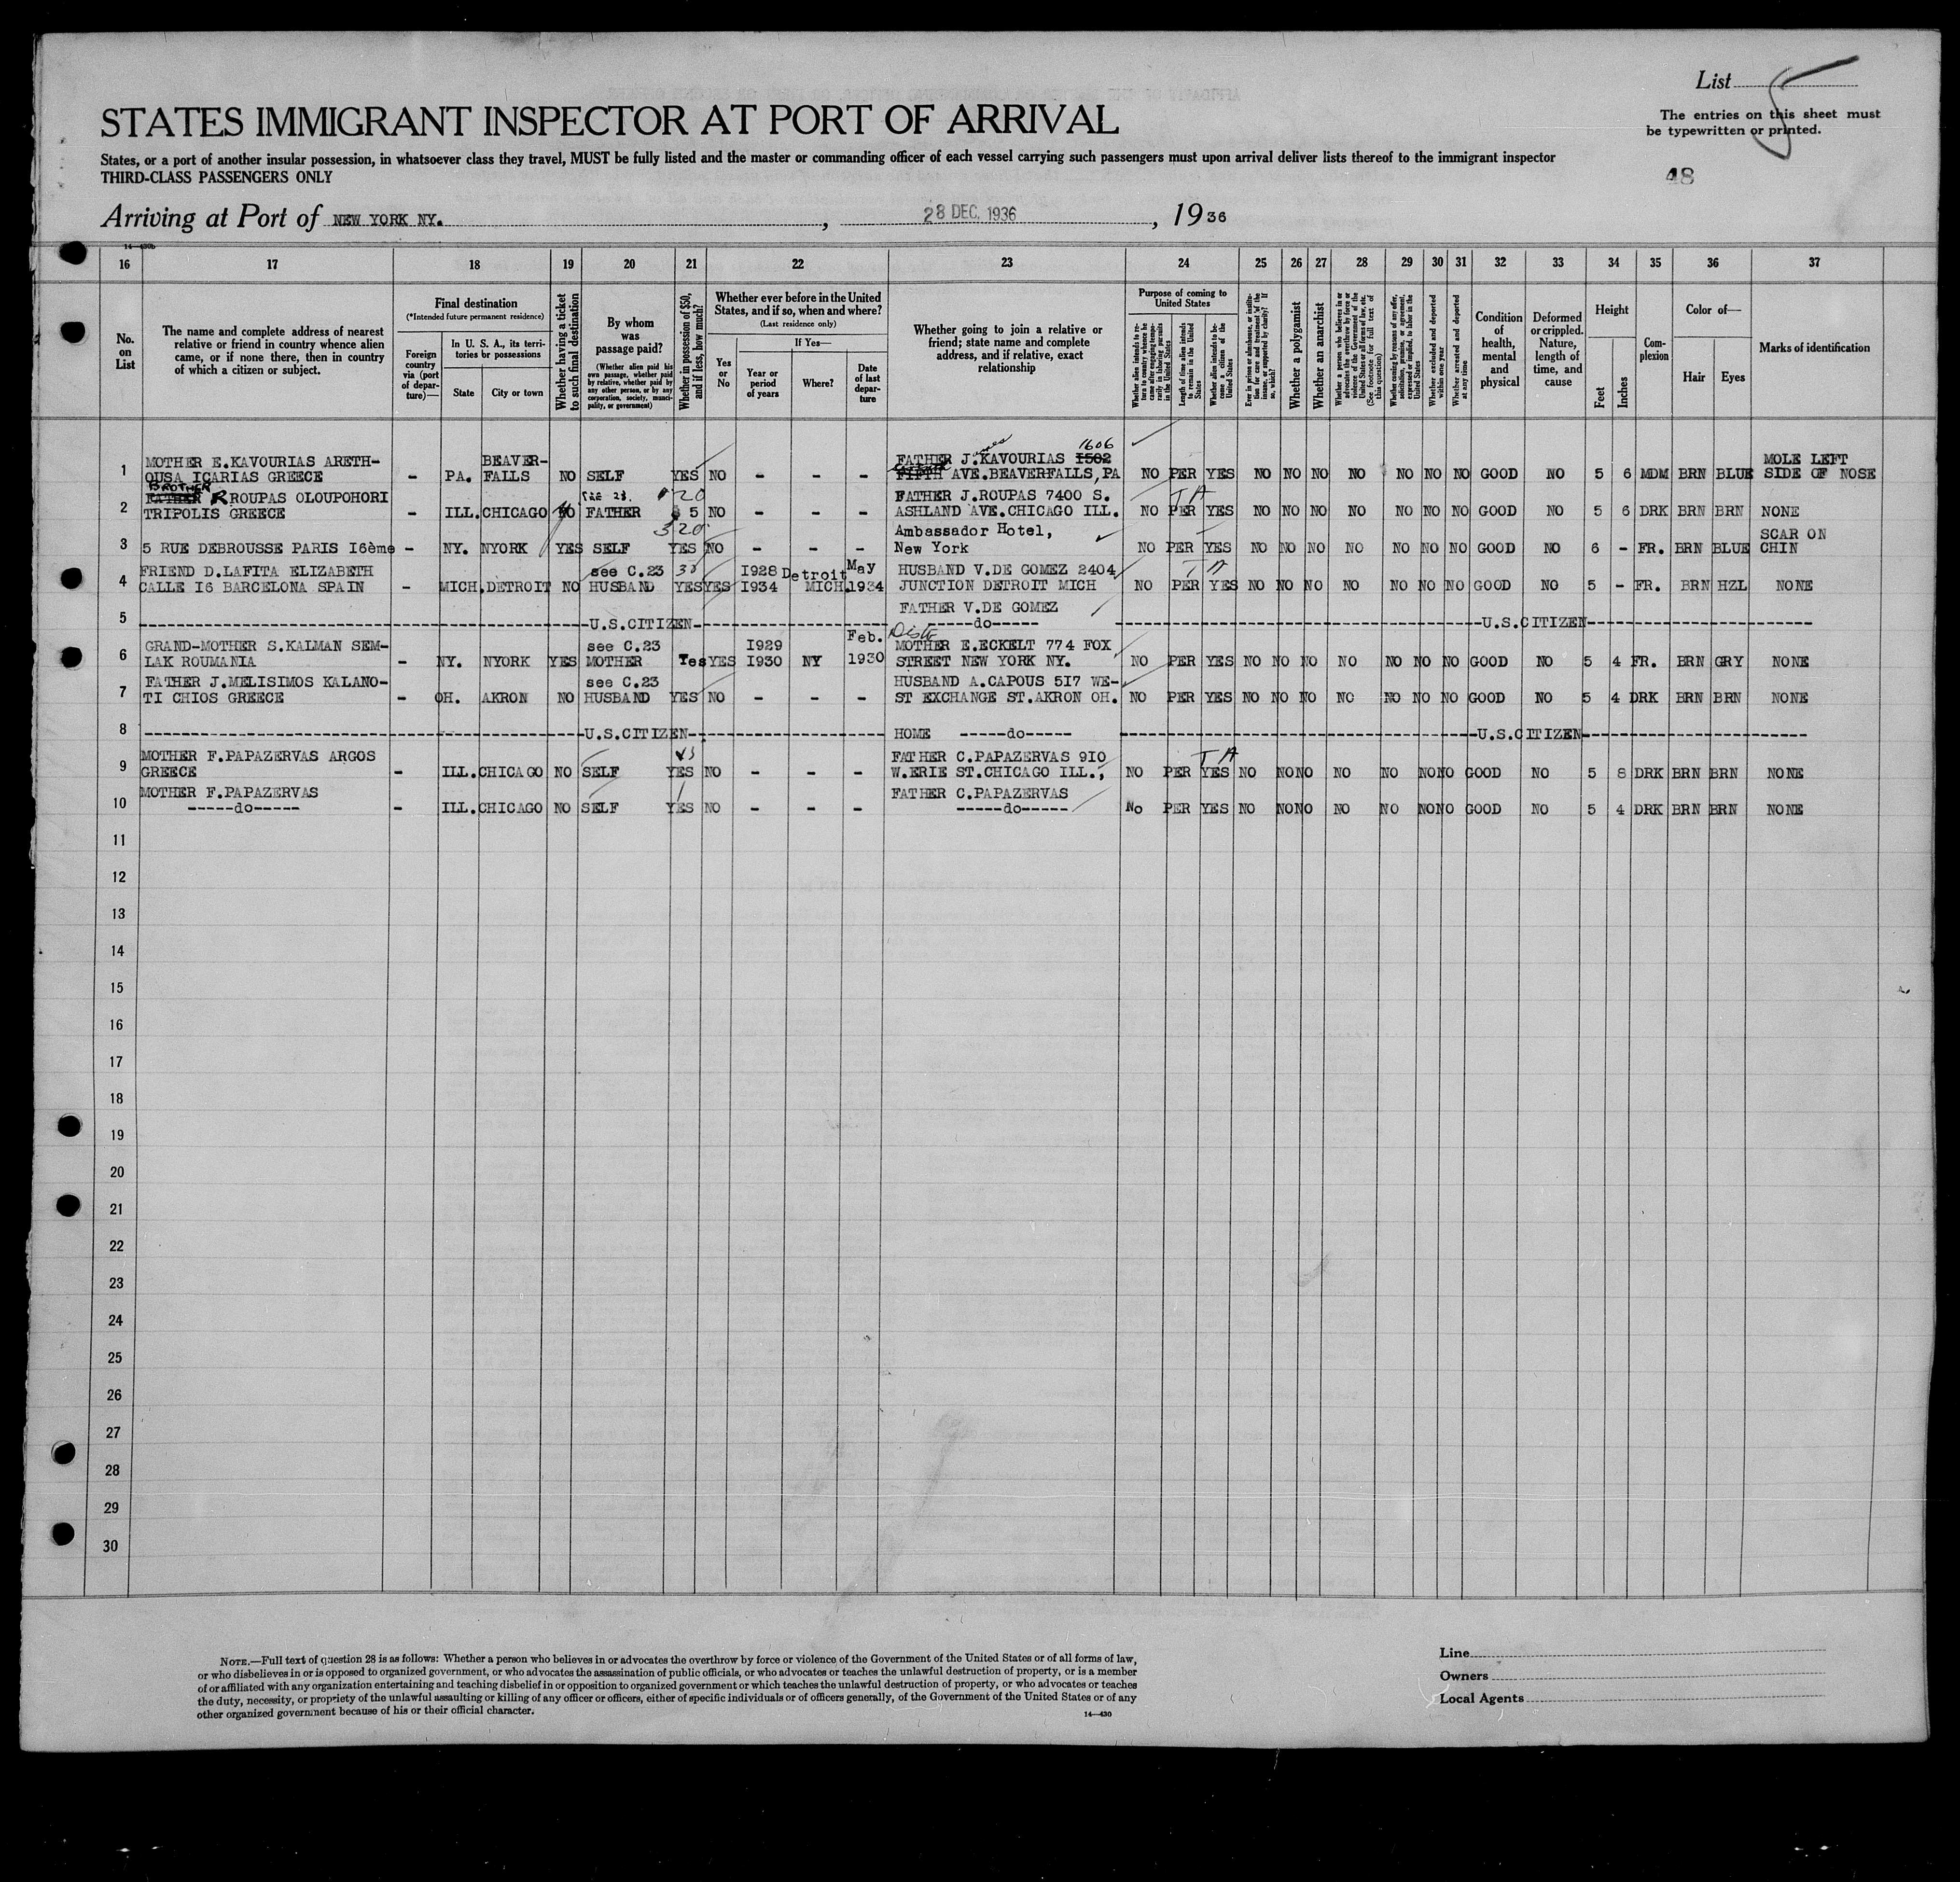 List 5
The entries on this sheet must
be typewritten or printed.
STATES IMMIGRANT INSPECTOR AT PORT OF ARRIVAL
States, or a port of another insular possession, in whatsoever class they travel, MUST be fully listed and the master or commanding officer of each vessel carrying such passengers must upon arrival deliver lists thereof to the immigrant inspector
THIRD-CLASS PASSENGERS ONLY
48
Arriving at Port of NEW YORK NY. , 28 DEC. 1936 , 1936
14—430b
16 17 18 19 20 21 22 23 24 25 26 27 28 29 30 31 32 33 34 35 36 37
No. on List
The name and complete address of nearest relative or friend in country whence alien came, or if none there, then in country of which a citizen or subject.
Final destination
(*Intended future permanent residence)
Foreign country via (port of departure)—
In U. S. A., its territories or possessions
State
City or town
Whether having a ticket to such final destination
By whom was passage paid?
(Whether alien paid his own passage, whether paid by relative, whether paid by any other person, or by any corporation, society, municipality, or government)
Whether in possession of $50, and if less, how much?
Whether ever before in the United States, and if so, when and where?
(Last residence only)
Yes or No
If Yes—
Year or period of years
Where?
Date of last departure
Whether going to join a relative or friend; state name and complete address, and if relative, exact relationship
Purpose of coming to United States
Whether alien intends to return to country whence he came after engaging temporarily in laboring pursuits in the United States
Length of time alien intends to remain in the United States
Whether alien intends to become a citizen of the United States
Ever in prison or almshouse, or institution for care and treatment of the insane, or supported by charity? If so, which?
Whether a polygamist
Whether an anarchist
Whether a person who believes in or advocates the overthrow by force or violence of the Government of the United States or all forms of law, etc. (See footnote for full text of this question)
Whether coming by reasons of any offer, solicitation, promise, or agreement, expressed or implied, to labor in the United States
Whether excluded and deported within one year
Whether arrested and deported at any time
Condition of health, mental and physical
Deformed or crippled. Nature, length of time, and cause
Height
Feet
Inches
Complexion
Color of—
Hair
Eyes
Marks of identification
BEAVER- 1606
MOTHER E.KAVOURIAS ARETH- FATHER J.KAVOURIAS 1502 MOLE LEFT
1 OUSA ICARIAS GREECE - PA. FALLS NO SELF YES NO - - - FIFTH AVE.BEAVERFALLS,PA NO PER YES NO NO NO NO NO NO NO GOOD NO 5 6 MDM BRN BLUE SIDE OF NOSE
BROTHER
FATHER R ROUPAS OLOUPOHORI 20 FATHER J.ROUPAS 7400 S. T A
2 TRIPOLIS GREECE - ILL. CHICAGO NO FATHER $ 5 NO - - - ASHLAND AVE.CHICAGO ILL. NO PER YES NO NO NO NO NO NO NO GOOD NO 5 6 DRK BRN BRN NONE
320 Ambassador Hotel, SCAR ON
3 5 RUE DEBROUSSE PARIS I6ème - NY. NYORK YES SELF YES NO - - - New York NO PER YES NO NO NO NO NO NO NO GOOD NO 6 - FR. BRN BLUE CHIN
FRIEND D.LAFITA ELIZABETH see C.23 I928 Detroit May HUSBAND V.DE GOMEZ 2404 T A
4 CALLE I6 BARCELONA SPAIN - MICH. DETROIT NO HUSBAND YES YES I934 MICH. 1934 JUNCTION DETROIT MICH NO PER YES NO NO NO NO NO NO NO GOOD NO 5 - FR. BRN HZL NONE
FATHER V.DE GOMEZ
5 -----U.S.CITIZEN----- -----do----- -----U.S.CITIZEN-----
GRAND-MOTHER S.KALMAN SEM- see C.23 I929 Feb. MOTHER E.ECKELT 774 FOX
6 LAK ROUMANIA - NY. NYORK YES MOTHER Yes YES I930 NY 1930 STREET NEW YORK NY. NO PER YES NO NO NO NO NO NO NO GOOD NO 5 4 FR. BRN GRY NONE
FATHER J.MELISIMOS KALANO- see C.23 HUSBAND A.CAPOUS 5I7 WE-
7 TI CHIOS GREECE - OH. AKRON NO HUSBAND YES NO - - - ST EXCHANGE ST.AKRON OH. NO PER YES NO NO NO NO NO NO NO GOOD NO 5 4 DRK BRN BRN NONE
8 -----U.S.CITIZEN----- HOME -----do----- -----U.S.CITIZEN-----
MOTHER F.PAPAZERVAS ARGOS FATHER C.PAPAZERVAS 9IO T A
9 GREECE - ILL. CHICAGO NO SELF YES NO - - - W.ERIE ST.CHICAGO ILL., NO PER YES NO NO NO NO NO NO NO GOOD NO 5 8 DRK BRN BRN NONE
MOTHER F.PAPAZERVAS FATHER C.PAPAZERVAS
10 -----do----- - ILL. CHICAGO NO SELF YES NO - - - -----do----- No PER YES NO NO NO NO NO NO NO GOOD NO 5 4 DRK BRN BRN NONE
11
12
13
14
15
16
17
18
19
20
21
22
23
24
25
26
27
28
29
30
NOTE.—Full text of question 28 is as follows: Whether a person who believes in or advocates the overthrow by force or violence of the Government of the United States or of all forms of law,
or who disbelieves in or is opposed to organized government, or who advocates the assassination of public officials, or who advocates or teaches the unlawful destruction of property, or is a member
of or affiliated with any organization entertaining and teaching disbelief in or opposition to organized government or which teaches the unlawful destruction of property, or who advocates or teaches
the duty, necessity, or propriety of the unlawful assaulting or killing of any officer or officers, either of specific individuals or of officers generally, of the Government of the United States or of any
other organized government because of his or their official character.
14—430
Line
Owners
Local Agents